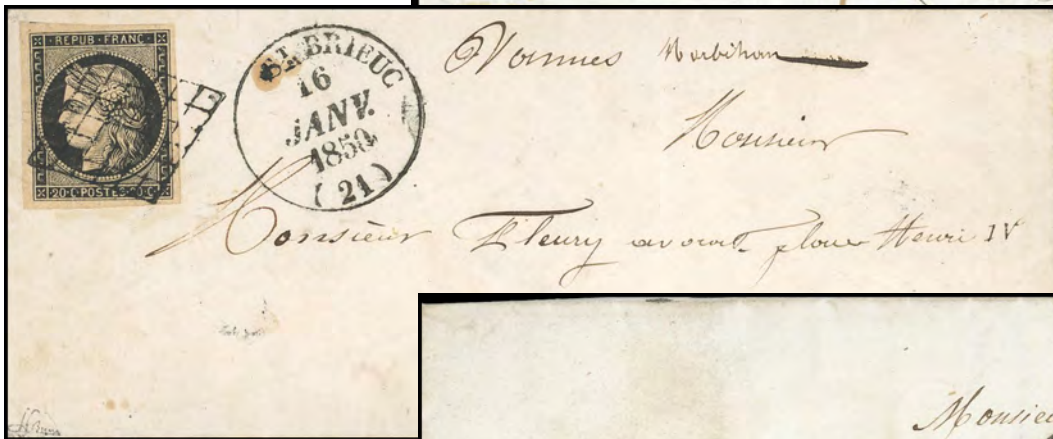 REPUB·FRANC·
20·C·POSTES·20·C·
ST BRIEUC
16
JANV.
1850
(21)
Vannes Morbihan
Monsieur
Monsièur Fleury avocat place Henri IV
Monsieu